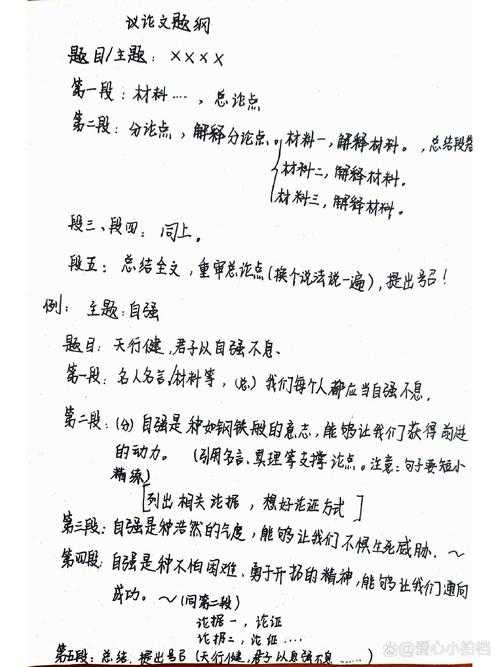 议论文题纲
题目/主题：××××
第一段：材料……，总论点
第二段：分论点，解释分论点。材料一，解释材料。，总结段落
材料二，解释材料。
材料三，解释材料。
段三、段四：同上。
段五：总结全文，重审总论点(换个说法说一遍)，提出号召！
例：主题：自强
题目：天行健，君子以自强不息、
第一段：名人名言/材料等，(总)我们每个人都应当自强不息．
第二段：(分)自强是种如钢铁般的意志，能够让我们获得前进
的动力。(引用名言、真理等支撑论点。注意：句子要短小
精练)
[列出相关论据，想好论证方式]
第三段：自强是种浩然的气度，能够让我们不惧生死威胁．～
第四段：自强是种不怕困难、勇于开拓的精神，能够让我们通向
成功。～(同第二段)
论据一，论证
论据二，论证....
第五段：总结、提出号召(天行健，君子以自强不息……)
@爱心小铅档